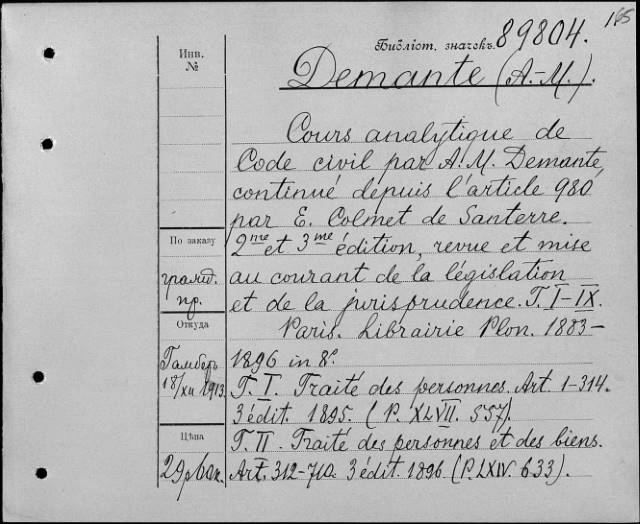 165
Библіот. значекъ 89804.
Инв.
№
Demante (A.-M.).
Cours analytique de
Code civil par A. M. Demante,
continué depuis l'article 980
par E. Colmet de Santerre.
2me et 3me édition, revue et mise
au courant de la législation
et de la jurisprudence. T. I–IX.
Paris. Librairie Plon. 1883–
1896 in 8°.
T. I. Traité des personnes. Art. 1-314.
3 édit. 1895. (P. XLVII. 557).
T. II. Traité des personnes et des biens.
Art. 312-710. 3 édit. 1896. (P. LXIV. 633).
По заказу
гражд.
пр.
Откуда
Гамберъ
18/XII 1913.
Цѣна
29 р. 60 к.